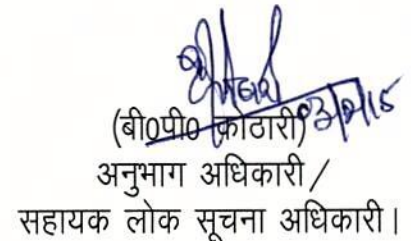 (बी0पी0 कोठारी)
अनुभाग अधिकारी /
सहायक लोक सूचना अधिकारी।